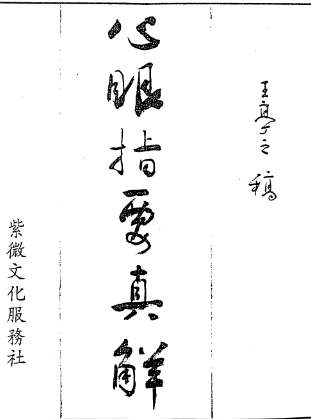 王亭之稿
心眼指要真解
紫微文化服務社